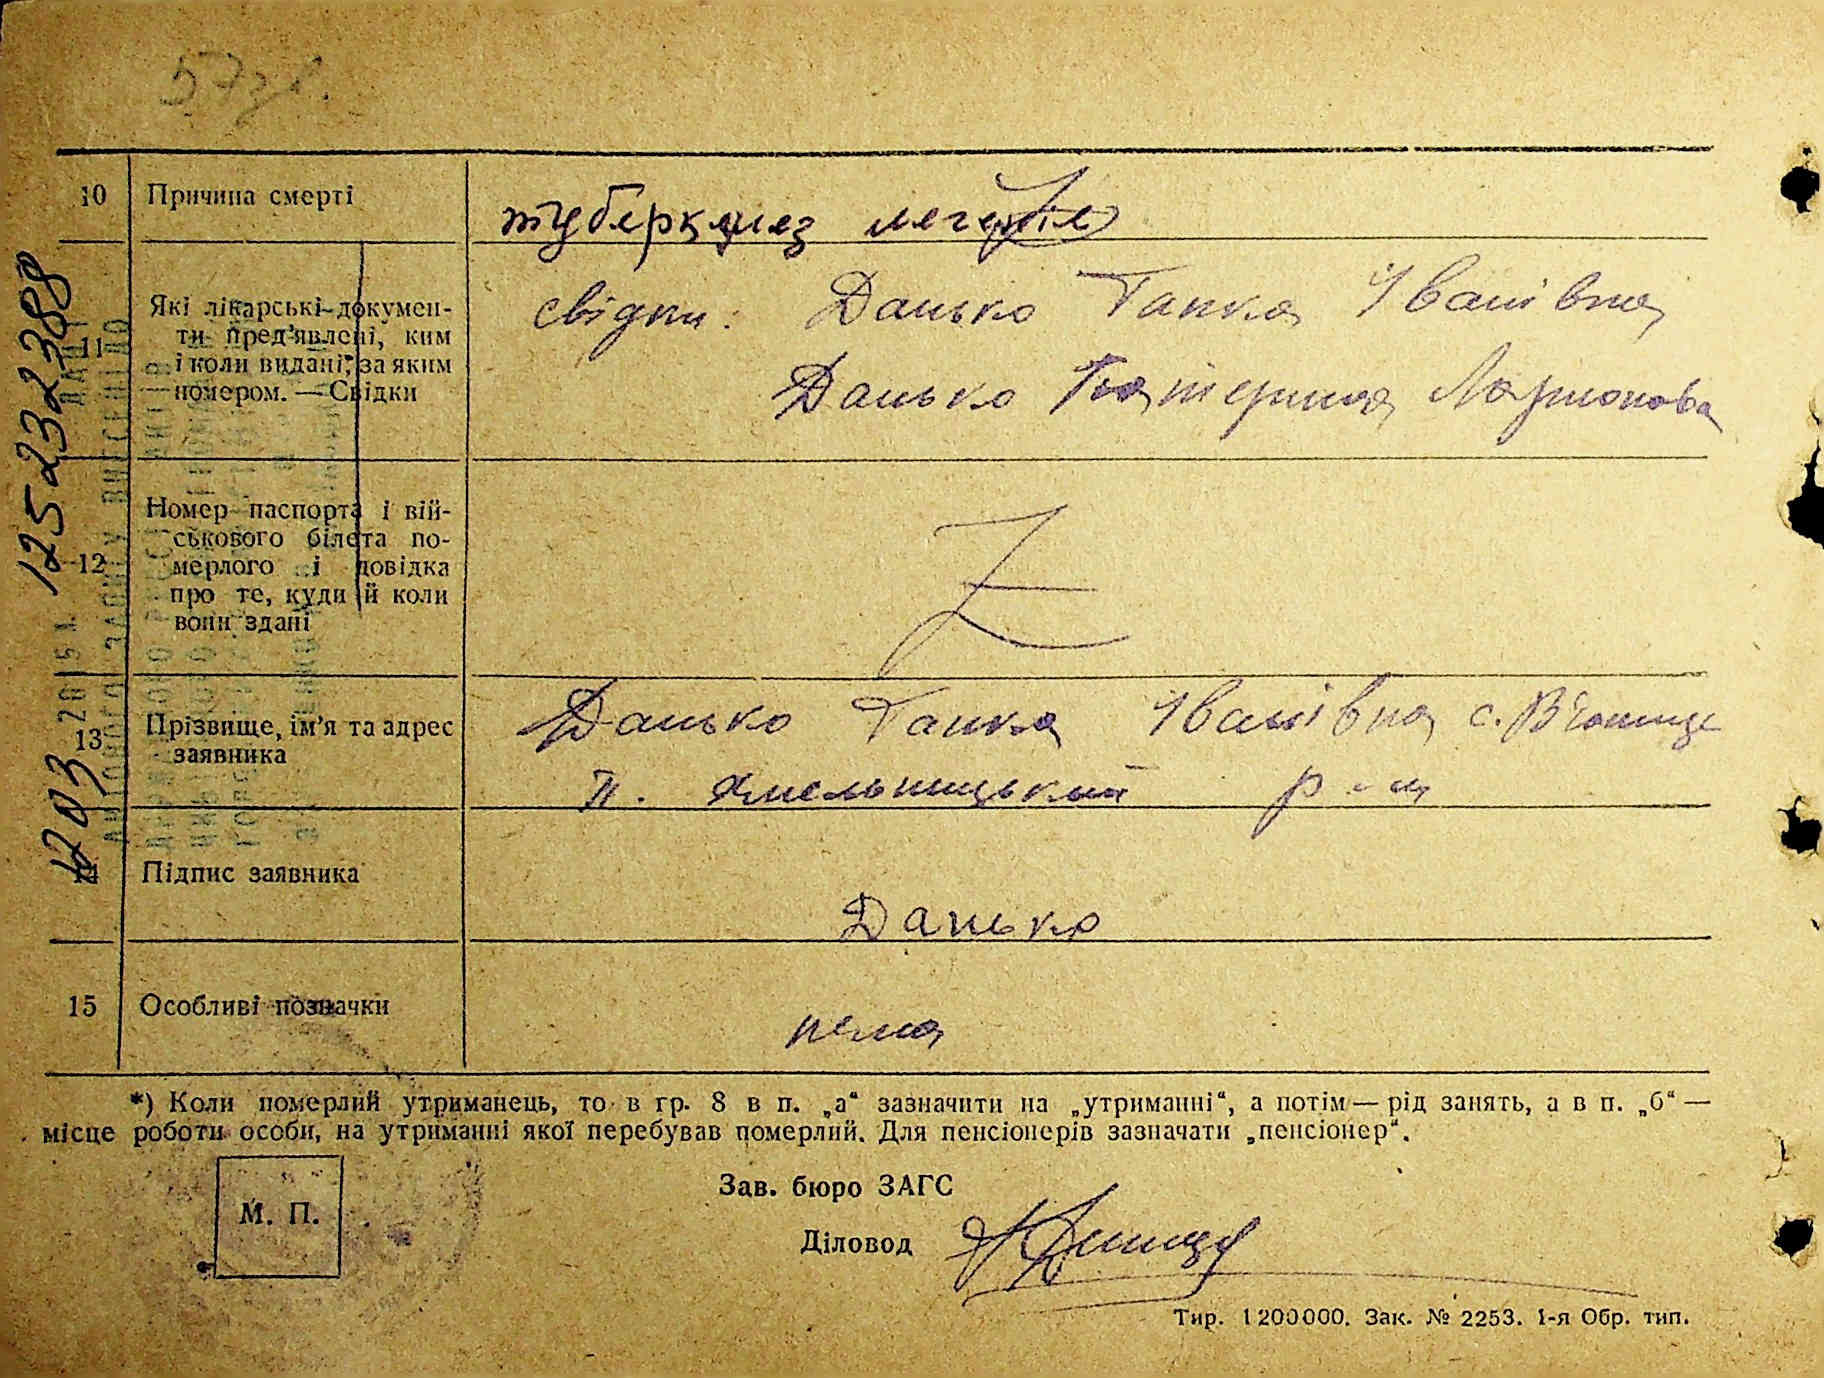 10 Причина смерті
туберкулез легенів
11 Які лікарські докумен-
ти пред'явлені, ким
і коли видані, за яким
номером. — Свідки
свідки: Данько Ганка Іванівна
Данько Катерина Ларионова
12 Номер паспорта і вій-
ськового білета по-
мерлого і довідка
про те, куди й коли
вони здані
13 Прізвище, ім'я та адрес
заявника
Данько Ганка Іванівна с.
П. Хмельницький р-н
14 Підпис заявника
Данько
15 Особливі позначки
нема
*) Коли померлий утриманець, то в гр. 8 в п. „а“ зазначити на „утриманні“, а потім — рід занять, а в п. „б“ —
місце роботи особи, на утриманні якої перебував померлий. Для пенсіонерів зазначати „пенсіонер“.
М. П.
Зав. бюро ЗАГС
Діловод
Тир. 1200000. Зак. № 2253. 1-я Обр. тип.
1203 125232388